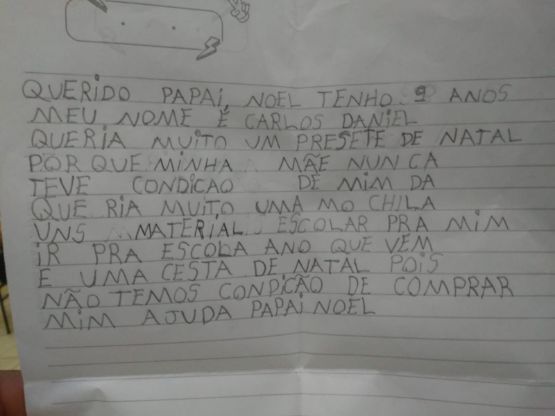 QUERIDO PAPAI, NOEL TENHO 9 ANOS
MEU NOME É CARLOS DANIEL
QUERIA MUITO UM PRESETE DE NATAL
POR QUE MINHA MÃE NUNCA
TEVE CONDICAO DE MIM DA
QUE RIA MUITO UMA MO CHILA
UNS MATERIAL ESCOLAR PRA MIM
IR PRA ESCOLA ANO QUE VEM
E UMA CESTA DE NATAL POIS
NÃO TEMOS CONDIÇÃO DE COMPRAR
MIM AJUDA PAPAI NOEL